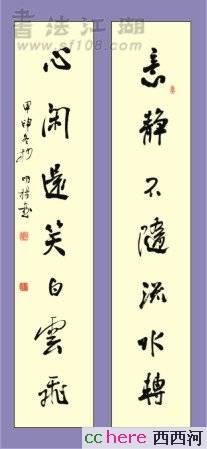 書法江湖
www.sf108.com
意靜不隨流水轉
心閑還笑白雲飛
甲申冬抄
cchere 西西河